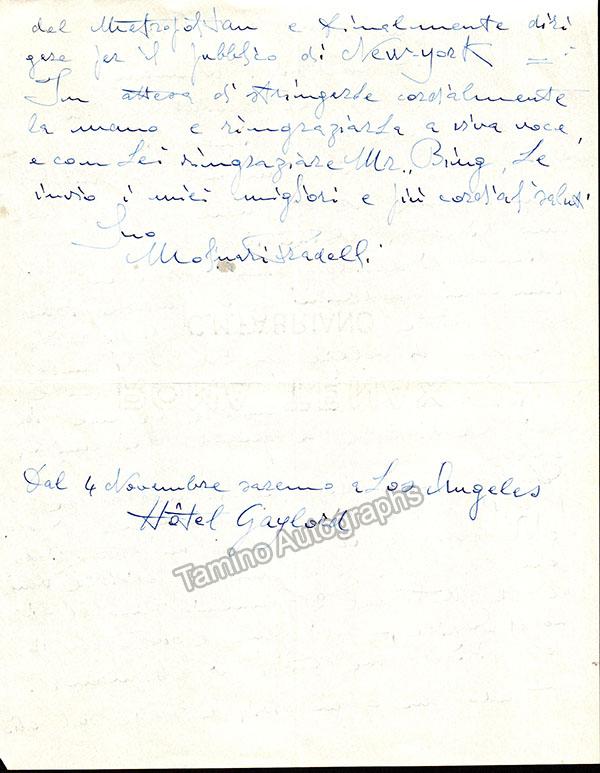 del Metropolitan e finalmente diri
gere per il pubblico di New-York =
In attesa di stringerle cordialmente
la mano e ringraziarla a viva voce,
e con Lei ringraziare Mr. Bing, Le
invio i miei migliori e più cordiali saluti
Suo
Molinari Pradelli
Dal 4 Novembre saremo a Los Angeles
Hôtel Gaylord
Tamino Autographs